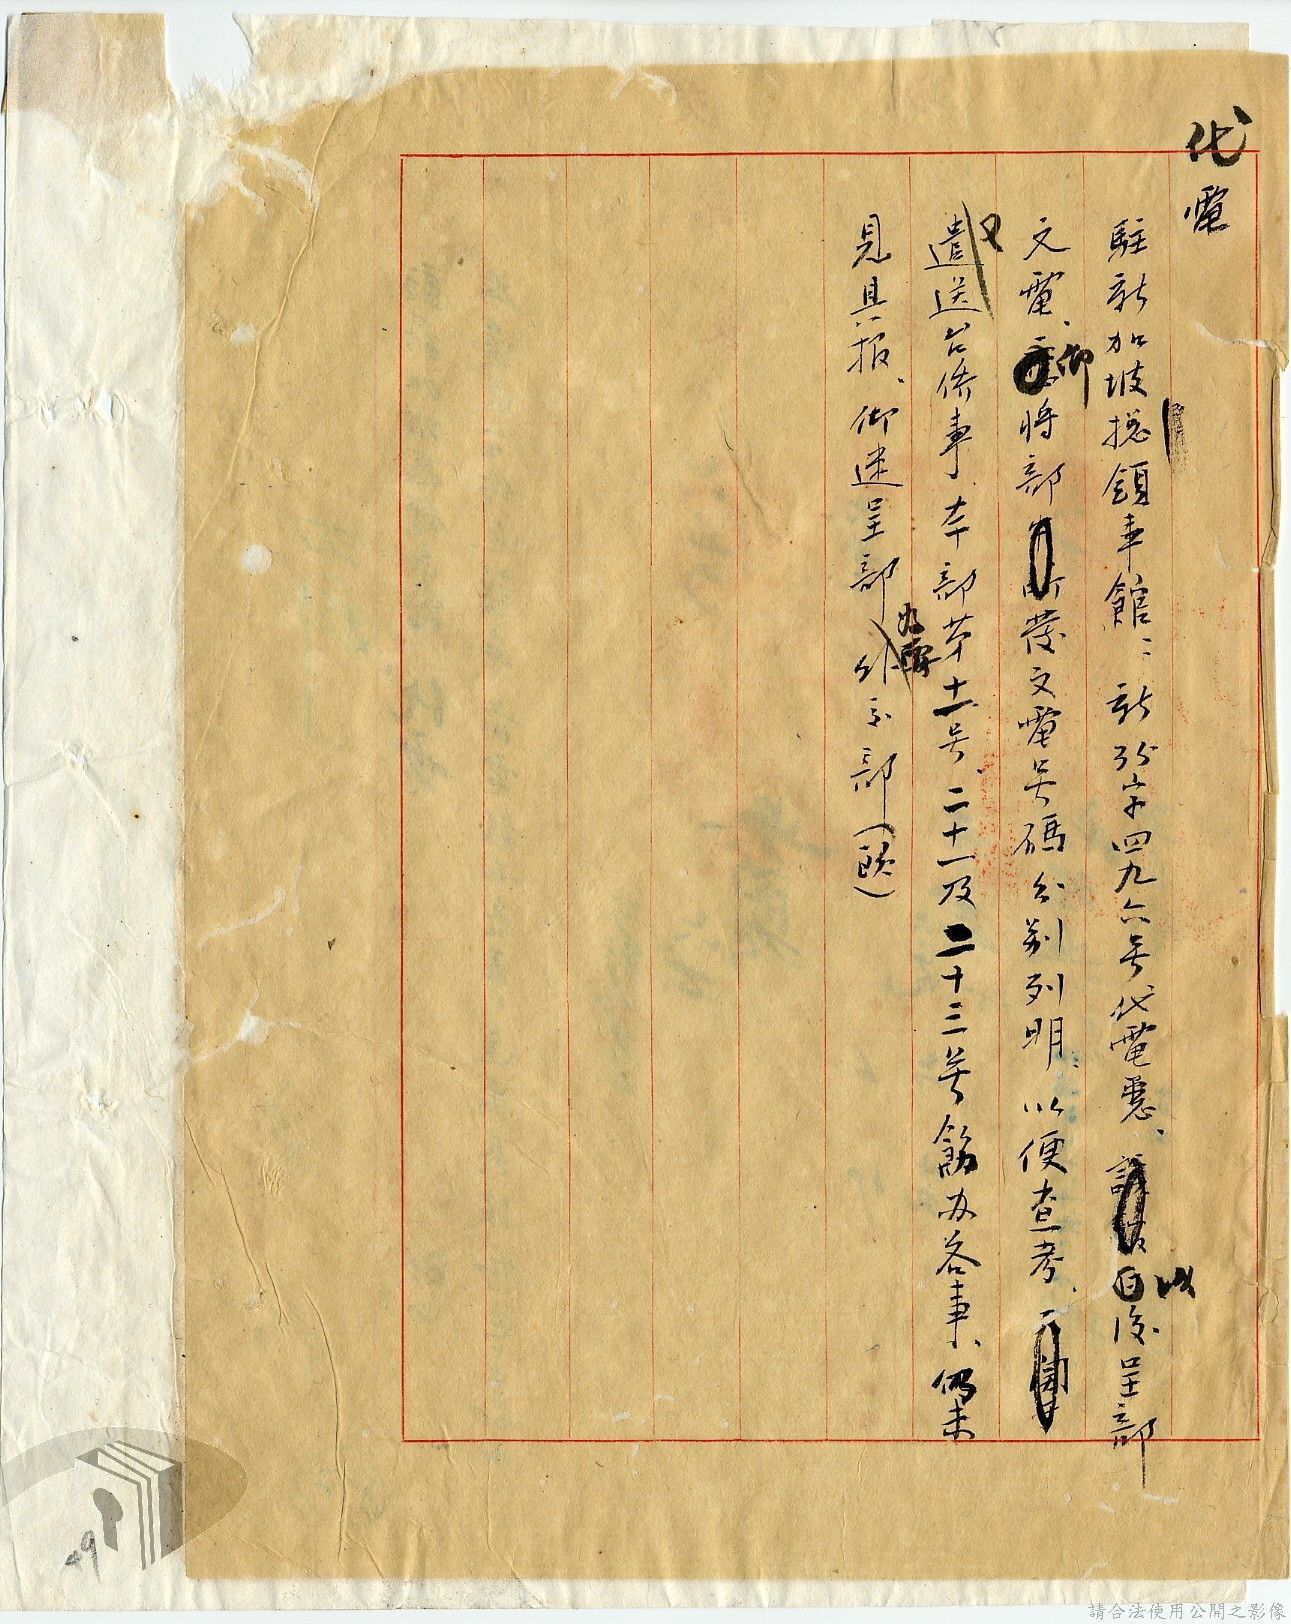 代電
駐新加坡總領事館：新91字四九六号代電悉、以後呈部
文電、仰將部所發文電号碼分別列明、以便查考、
又遣送台僑事、本部第十一号、二十一及二十三号飭办各事、仍未
見具報、仰迷呈部為要 外交部（歐）
49
請合法使用公開之影像